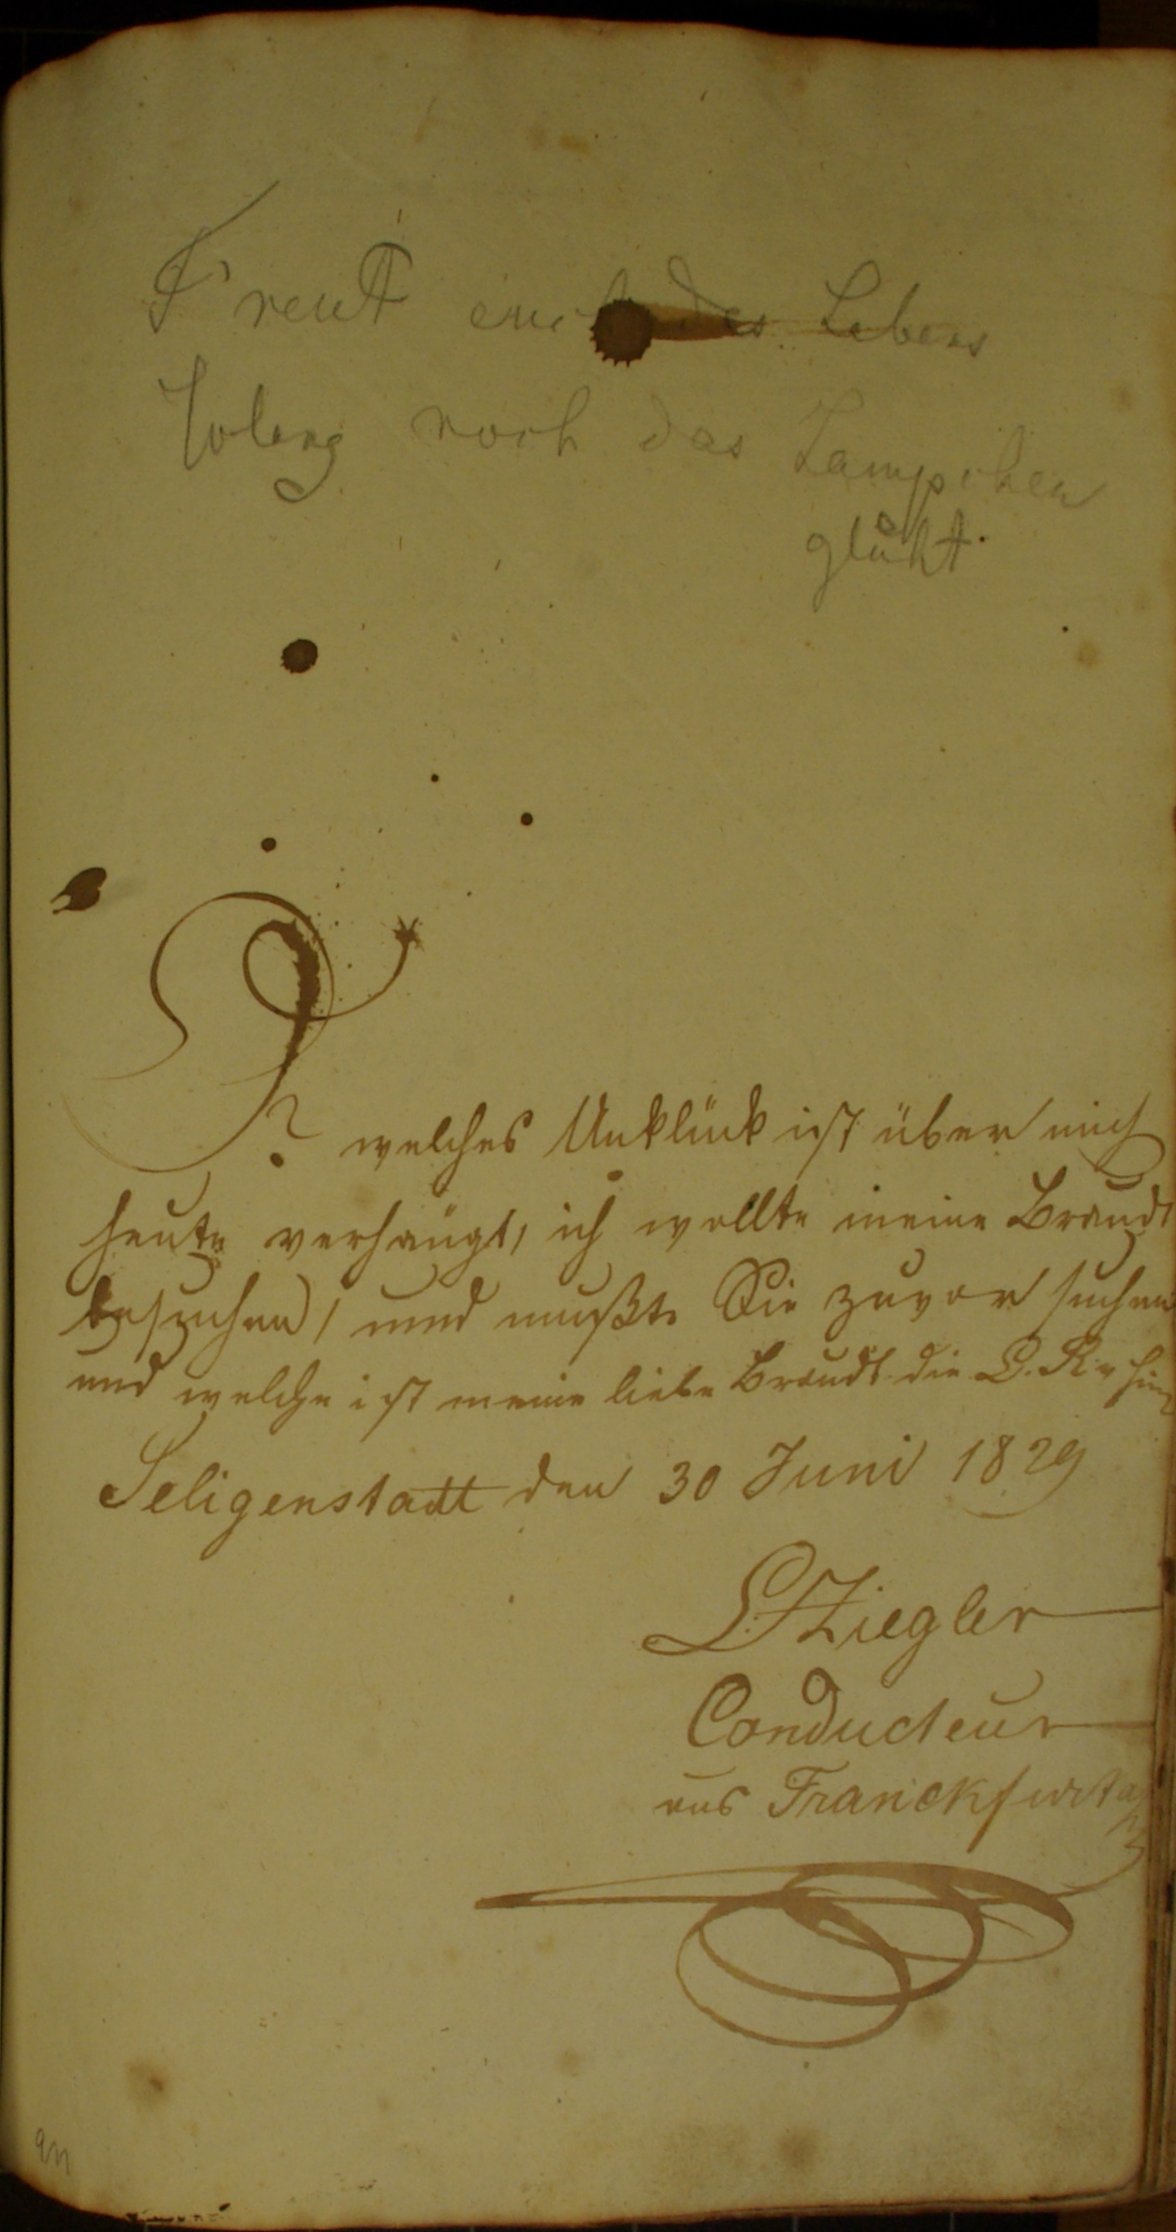 Freut euch des Lebens
solang noch das Lampchen
glüht.
O welches Unklück ist über mich
heute verhängt, ich wollte meine Braudt
besuchen, und mußte Sie zuvor suchen
und welche ist meine liebe Braudt die
Seligenstadt den 30 Juni 1829
L. Ziegler
Conducteur
aus Franckfurt a/